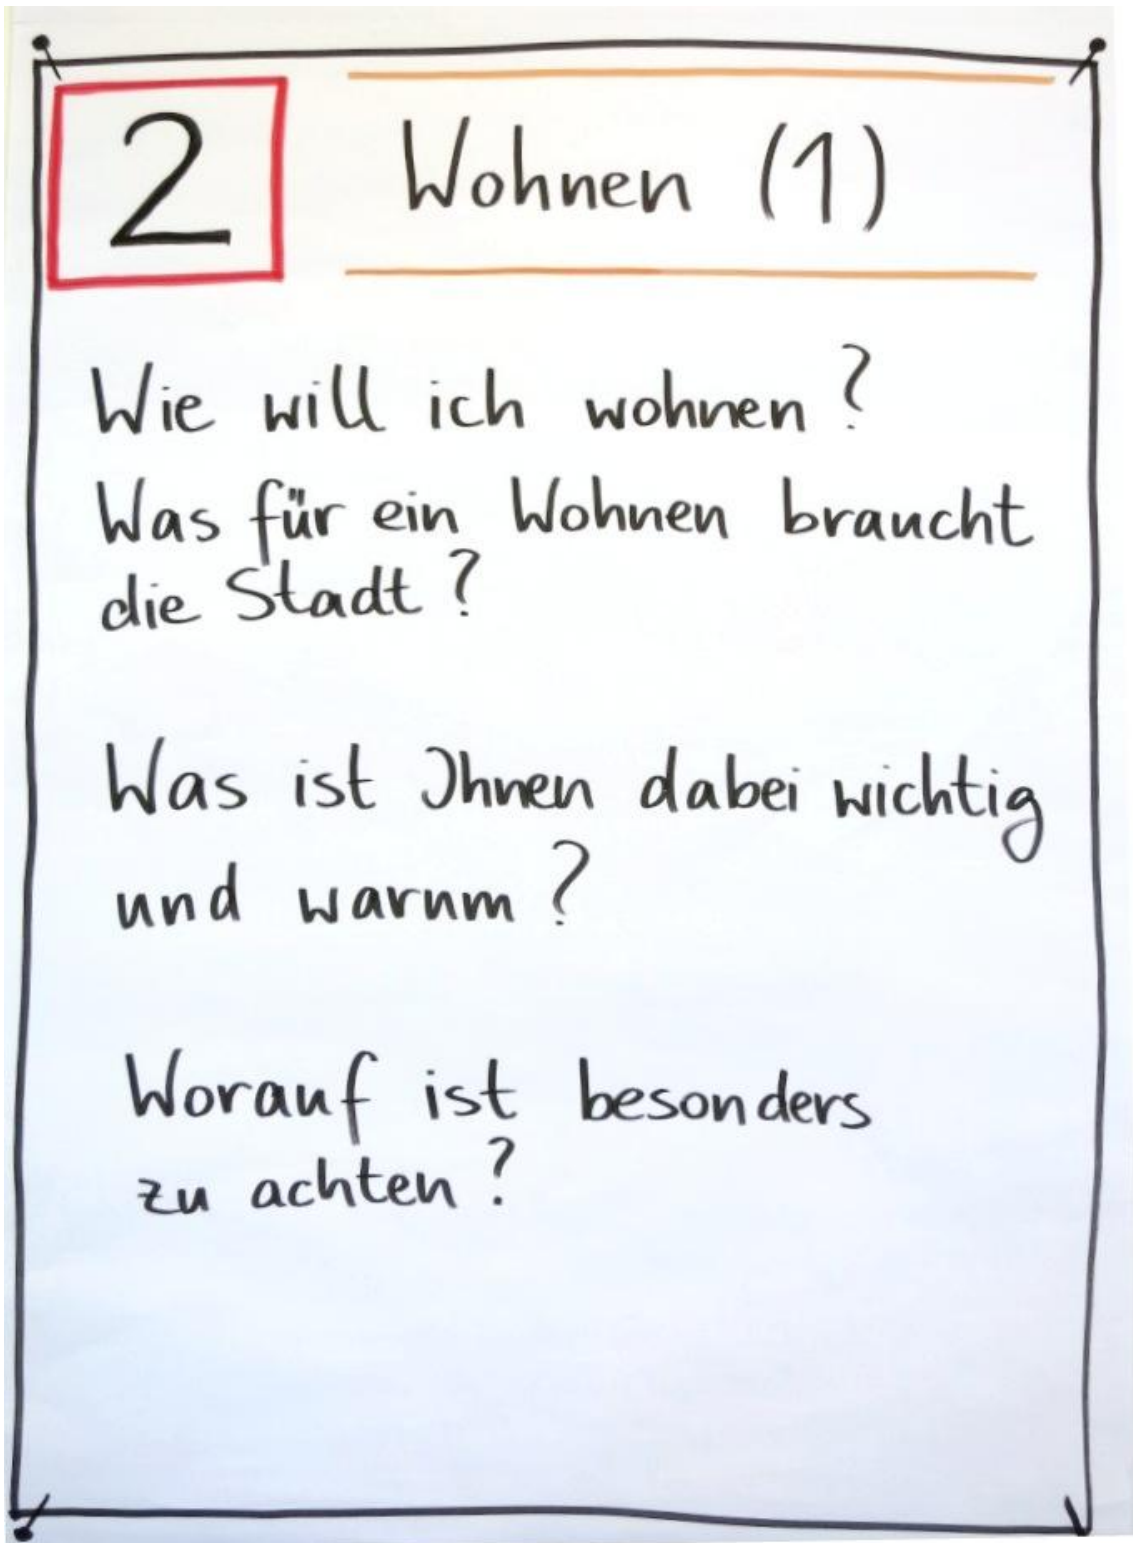 2 Wohnen (1)
Wie will ich wohnen?
Was für ein Wohnen braucht
die Stadt?
Was ist Ihnen dabei wichtig
und warum?
Worauf ist besonders
zu achten?